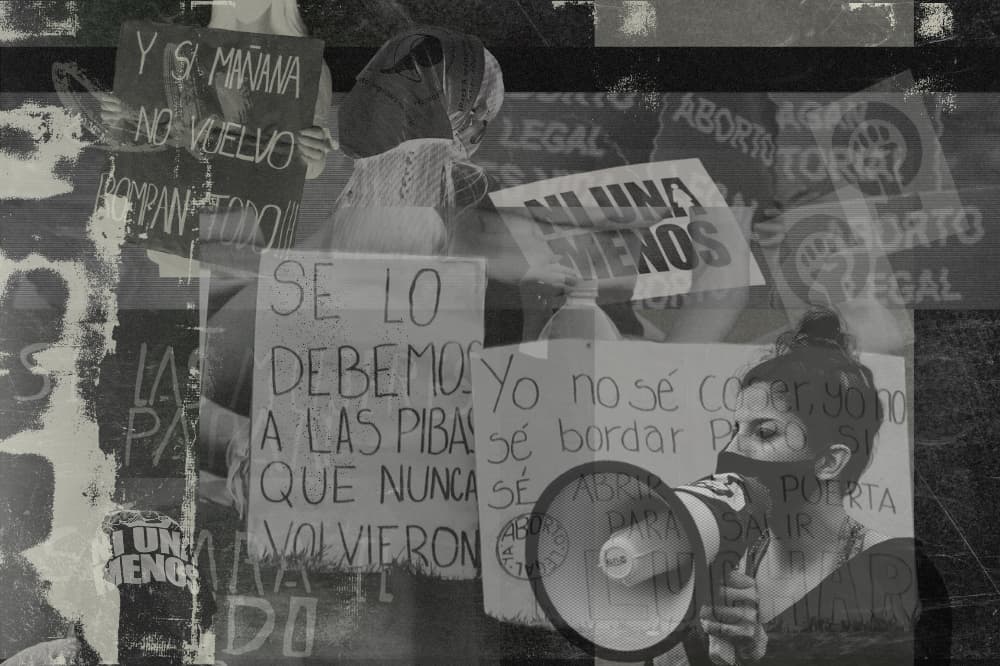 Y SI MAÑANA
NO VUELVO
¡ROMPAN TODO!!!
NI UNA
MENOS
ABORTO
LEGAL
ABORTO
ABORTO
LEGAL
SE LO
DEBEMOS
A LAS PIBAS
QUE NUNCA
VOLVIERON
Yo no sé coser, yo no
sé bordar PERO SI
SÉ ABRIR PUERTA
PARA SALIR
LUCHAR
ABORTO
LEGAL
NI UNA
MENOS
LAS